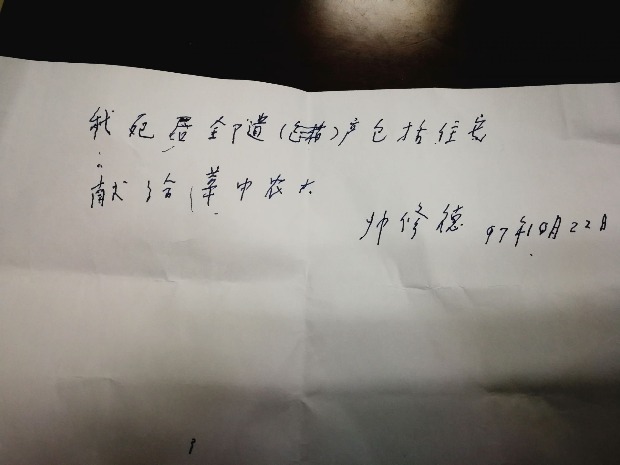 我死后全部遗(包括)产包括住房
献给华中农大
帅修德 97年10月22日